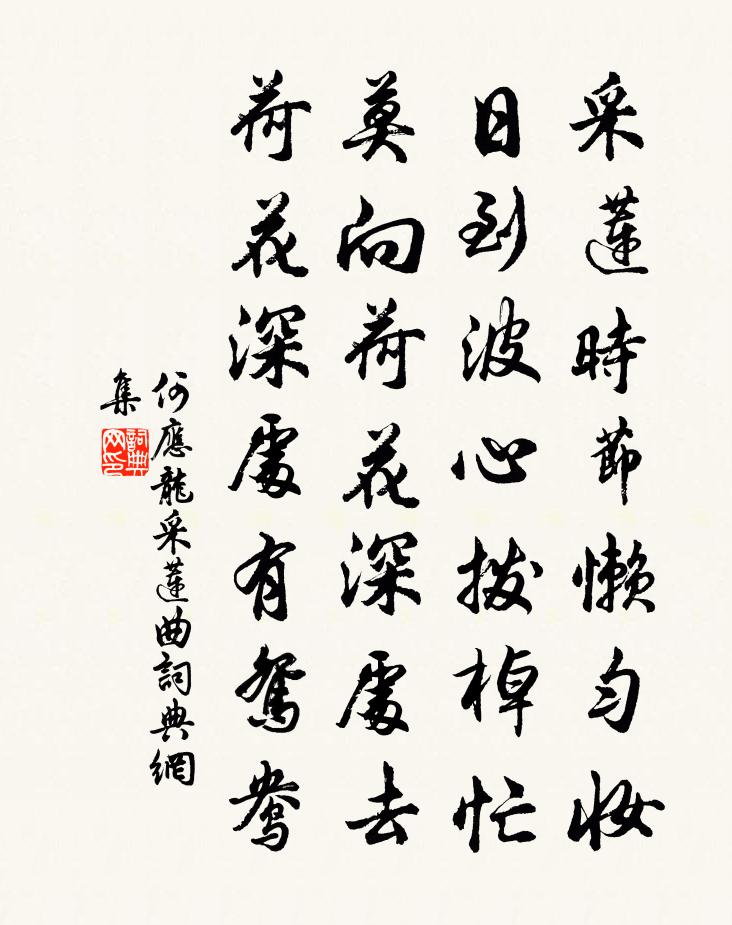 采蓮時節懶勻妝
日到波心撥棹忙
莫向荷花深處去
荷花深處有鴛鴦
何應龍采蓮曲詞典網
集
詞典網印